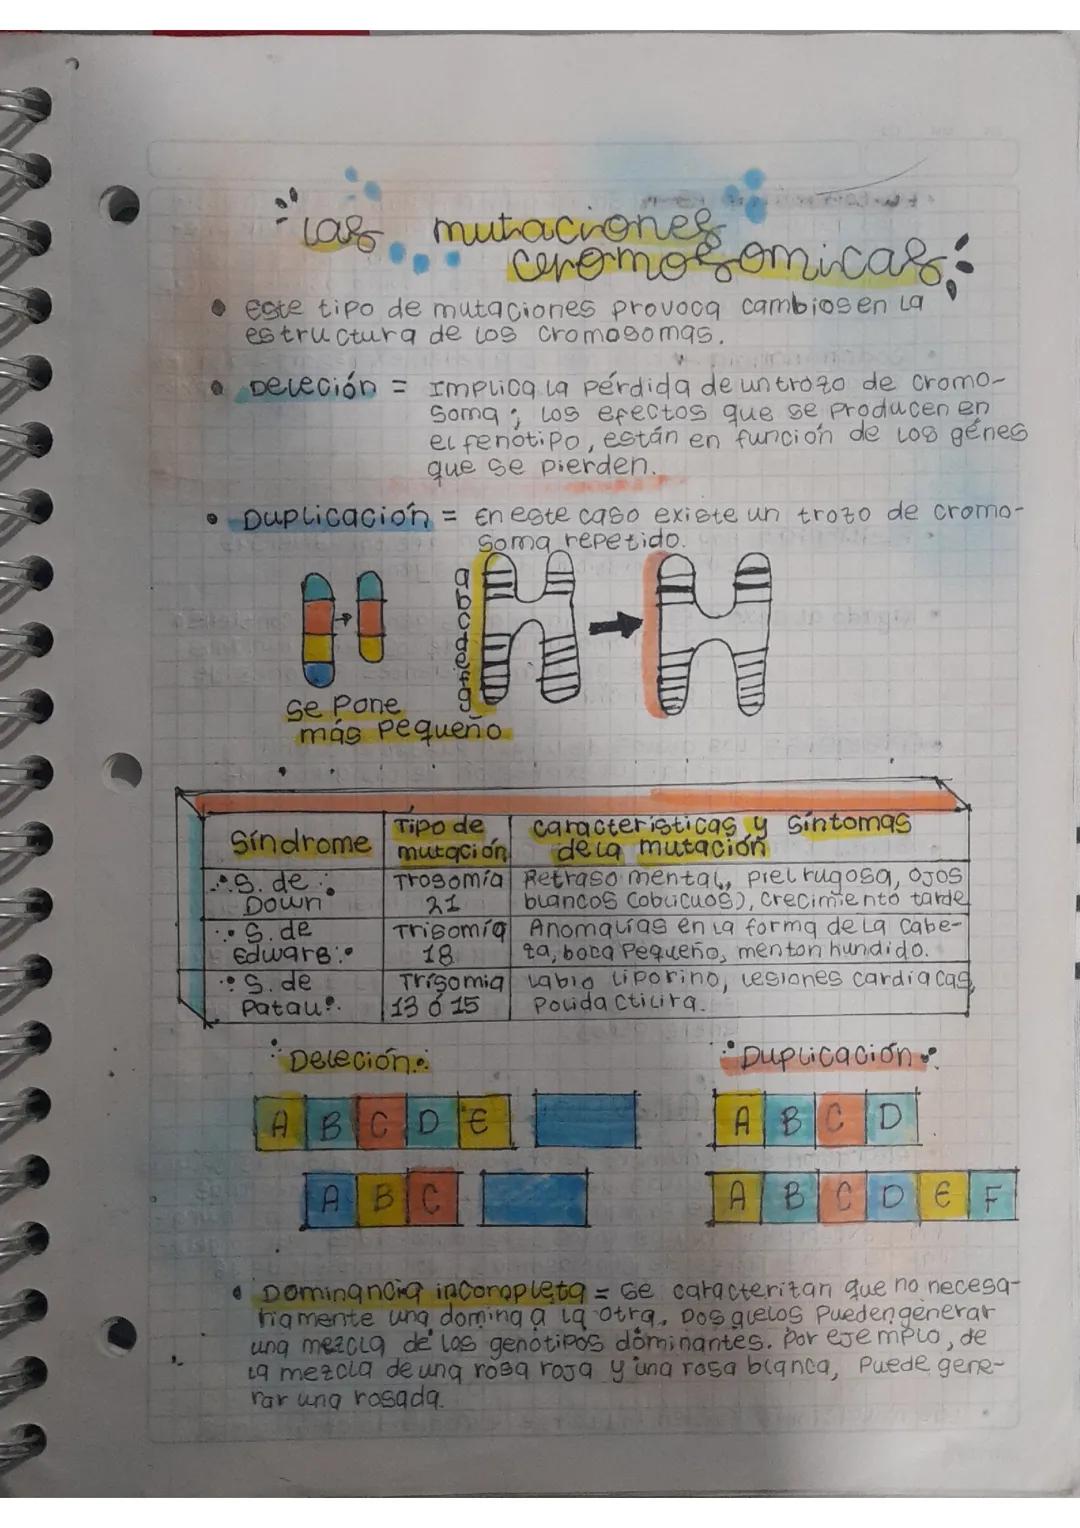 Las mutaciones
cromosomicas
Este tipo de mutaciones provoca cambios en la
estructura de los cromosomas.
Deleción = Implica la pérdida de un trozo de cromo-
soma; los efectos que se producen en
el fenotipo, están en función de los génes
que se pierden.
Duplicación = En este caso existe un trozo de cromo-
soma repetido.
a
b
c
d
e
f
g
se pone
más pequeño
Síndrome
Tipo de
mutación
características y síntomas
de la mutación
S. de
Down
Trosomía
21
Retraso mental, piel rugosa, ojos
blancos (oblicuos), crecimiento tarde
S. de
Edwars
Trisomía
18
Anomalías en la forma de la cabe-
za, boca pequeño, menton hundido.
S. de
Patau
Trisomia
13 ó 15
Labio liporino, lesiones cardiacas,
Deleción
Duplicación
A B C D E
A B C D
A B C
A B C D E F
Dominancia incompleta = se caracterizan que no necesa-
riamente una domina a la otra. Dos alelos pueden generar
una mezcla de los genotipos dominantes. Por ejemplo, de
la mezcla de una rosa roja y una rosa blanca, puede gene-
rar una rosada.